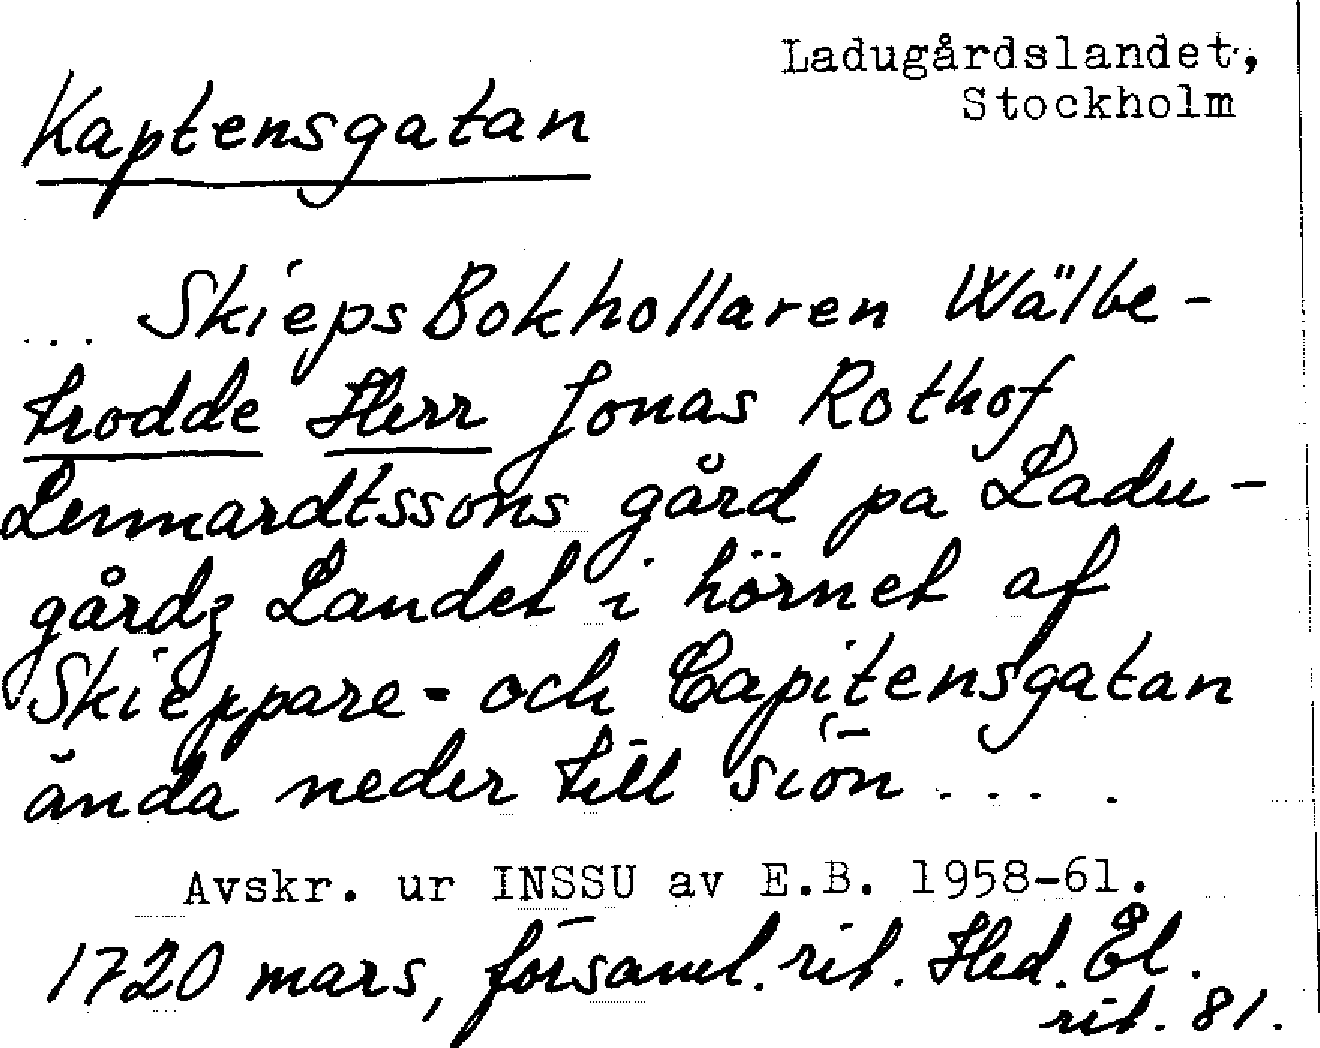 Ladugårdslandet,
Stockholm
Kaptensgatan
... Skieps Bokhollaren Wälbe-
trodde Herr Jonas Rothof
Lennardtssons gård pa Ladu-
gårdz Landet i hörnet af
Skieppare- och Capitensgatan
ända neder till siön ....
Avskr. ur INSSU av E.B. 1958-61.
1720 mars, församl. rit. Hed. Él.
rit. 81.